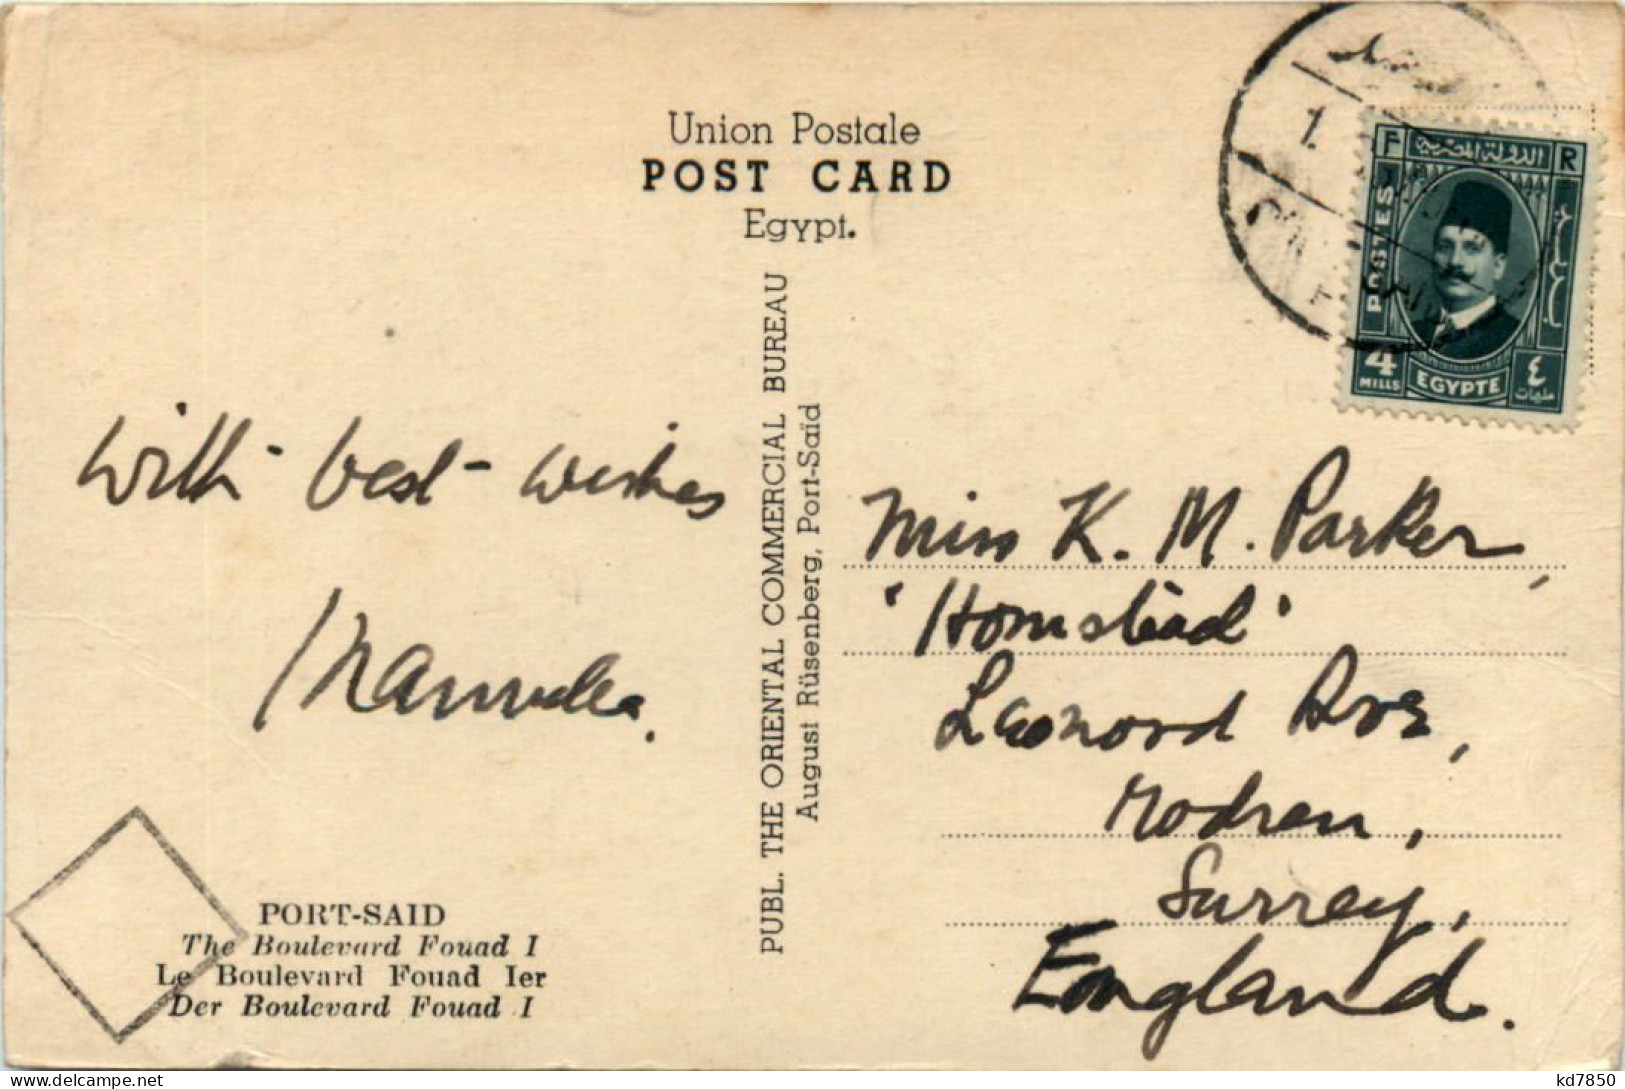 Union Postale
POST CARD
Egypt.
F الدولة المصرية R
POSTES
4
MILLS
EGYPTE
٤
مليمات
1.
With best wishes
PUBL. THE ORIENTAL COMMERCIAL BUREAU
August Rüsenberg, Port-Saïd
Miss K. M. Parker,
'Homstead'
Leonord Ave,
Modren,
Surrey,
England.
PORT-SAID
The Boulevard Fouad I
Le Boulevard Fouad Ier
Der Boulevard Fouad I
kd7850